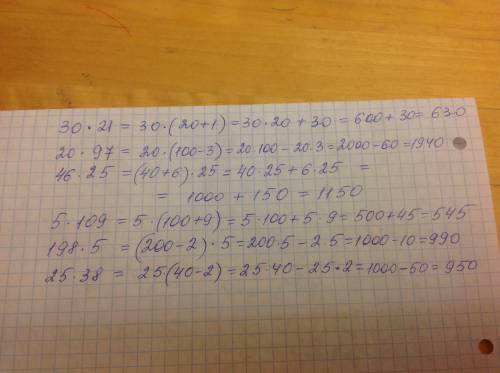 30 · 21 = 30 · (20+1) = 30 · 20 + 30 = 600 + 30 = 630
20 · 97 = 20 · (100-3) = 20 · 100 - 20 · 3 = 2000 - 60 = 1940
46 · 25 = (40+6) · 25 = 40 · 25 + 6 · 25 =
= 1000 + 150 = 1150
5 · 109 = 5 · (100+9) = 5 · 100 + 5 · 9 = 500 + 45 = 545
198 · 5 = (200-2) · 5 = 200 · 5 - 2 · 5 = 1000 - 10 = 990
25 · 38 = 25(40-2) = 25 · 40 - 25 · 2 = 1000 - 50 = 950